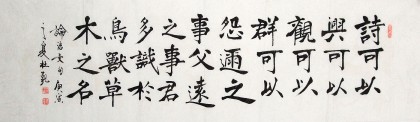 詩可以
興可以
觀可以
群可以
怨邇之
事父遠
之事君
多識於
鳥獸草
木之名
論語句